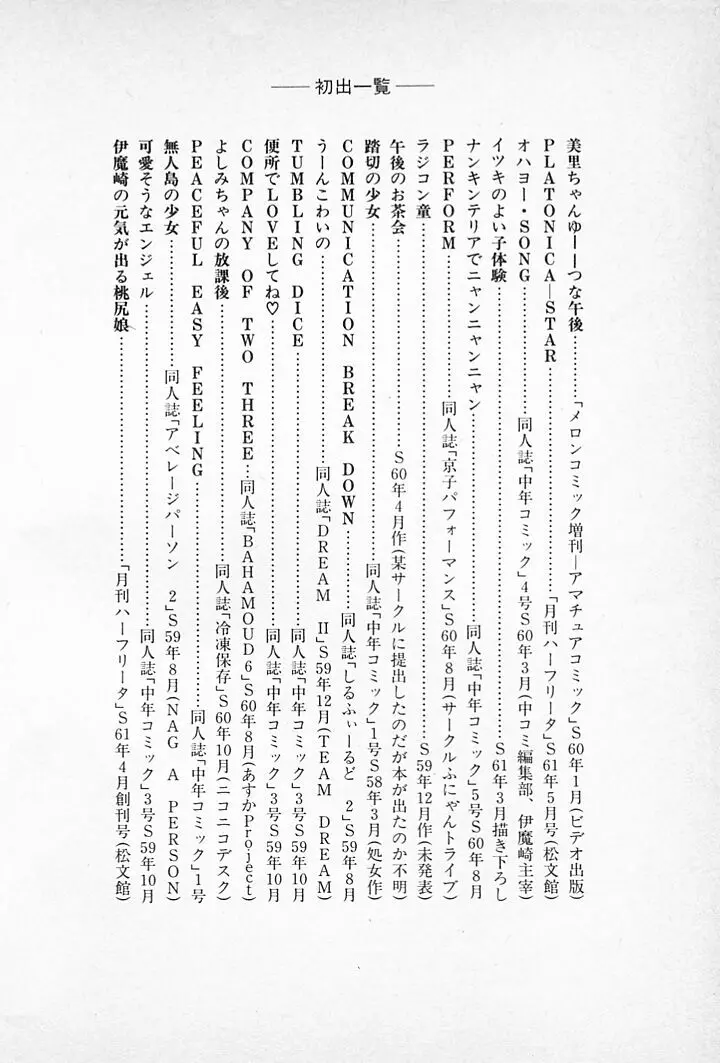 初出一覧
美里ちゃんゆーーつな午後…………「メロンコミック増刊―アマチュアコミック」S60年1月(ビデオ出版)
PLATONICA―STAR…………「月刊ハーフリータ」S61年5月号(松文館)
オハヨー・SONG…………同人誌「中年コミック」4号S60年3月(中コミ編集部、伊魔崎主宰)
イツキのよい子体験…………S61年3月描き下ろし
ナンキンテリアでニャンニャンニャン…………同人誌「中年コミック」5号S60年8月
PERFORM…………同人誌「京子パフォーマンス」S60年8月(サークルふにゃんトライブ)
ラジコン童…………S59年12月作(未発表)
午後のお茶会…………S60年4月作(某サークルに提出したのだが本が出たのか不明)
踏切の少女…………同人誌「中年コミック」1号S58年3月(処女作)
COMMUNICATION BREAK DOWN…………同人誌「しるふぃーるど 2」S59年8月
うーんこわいの…………同人誌「DREAM II」S59年12月(TEAM DREAM)
TUMBLING DICE…………同人誌「中年コミック」3号S59年10月
便所でLOVEしてね♡…………同人誌「中年コミック」3号S59年10月
COMPANY OF TWO THREE…同人誌「BAHAMOUD6」S60年8月(あすかProject)
よしみちゃんの放課後…………同人誌「冷凍保存」S60年10月(ニコニコデスク)
PEACEFUL EASY FEELING…………同人誌「中年コミック」1号
無人島の少女…………同人誌「アベレージパーソン 2」S59年8月(NAG A PERSON)
可愛そうなエンジェル…………同人誌「中年コミック」3号S59年10月
伊魔崎の元気が出る桃尻娘…………「月刊ハーフリータ」S61年4月創刊号(松文館)